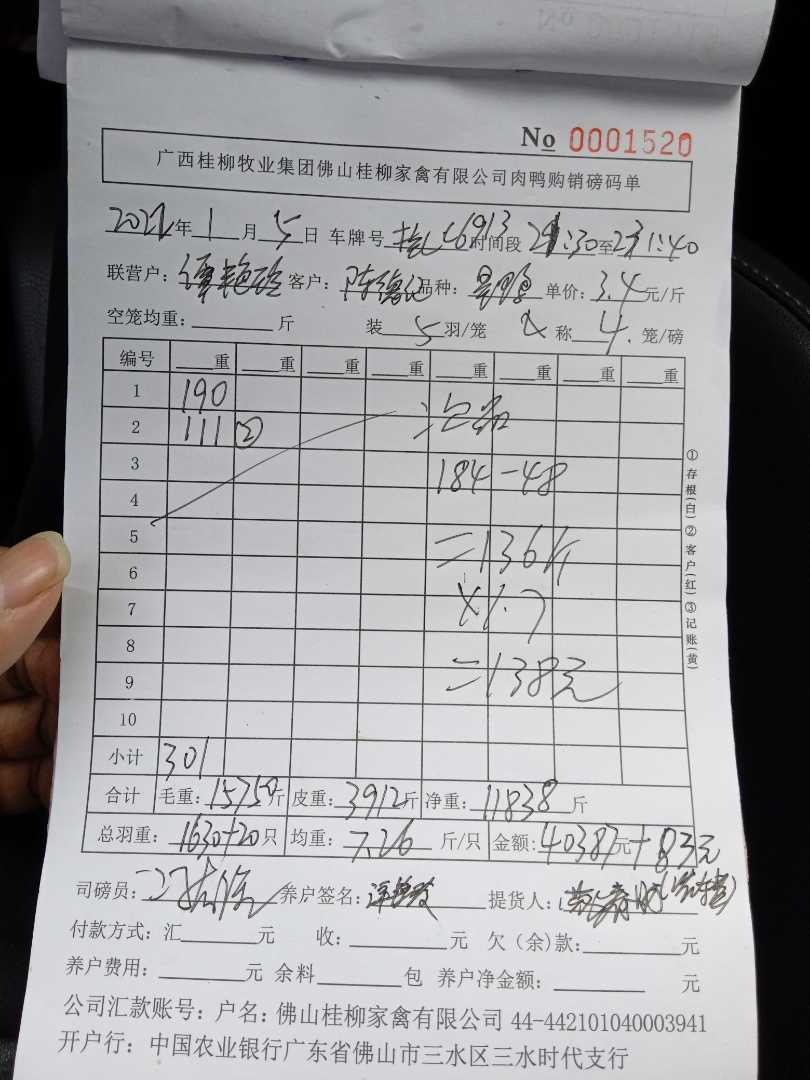 No 0001520
广西桂柳牧业集团佛山桂柳家禽有限公司肉鸭购销磅码单
2022年 1 月 5 日 车牌号 6913 时间段 至
联营户: 客户: 陈 品种: 单价: 3.4 元/斤
空笼均重: 斤 装 5 羽/笼 称 4. 笼/磅
编号 重 重 重 重 重 重 重 重
1 190
2 111 ②
3 184-48
4
5 =136斤
6
7 ×1.7
8
9 =138元
10
小计 301
合计 毛重: 15750斤 皮重: 3912斤 净重: 11838 斤
总羽重: 1630+20只 均重: 7.26 斤/只 金额: 40387元+83元
司磅员: 养户签名: 提货人:
付款方式: 汇 元 收: 元 欠(余)款: 元
养户费用: 元 余料 包 养户净金额: 元
公司汇款账号: 户名: 佛山桂柳家禽有限公司 44-442101040003941
开户行: 中国农业银行广东省佛山市三水区三水时代支行
①存根(白)②客户(红)③记账(黄)